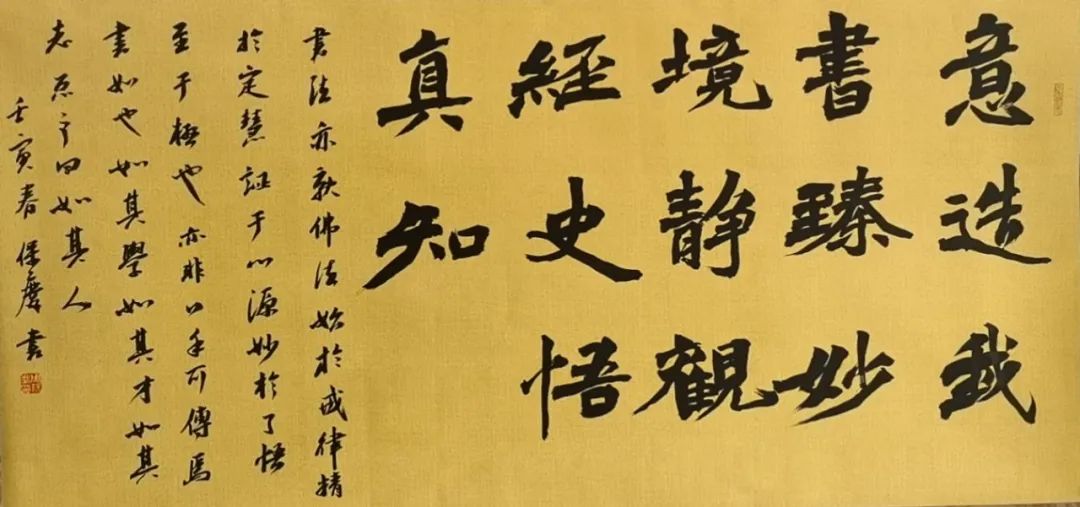 意造我
書臻妙
境靜觀
經史悟
真知
書法亦猶佛法始於戒律精
於定慧証于心源妙於了悟
至于極也亦非口手可傳焉
書如也如其學如其才如其
志總之曰如其人
壬寅春保慶書